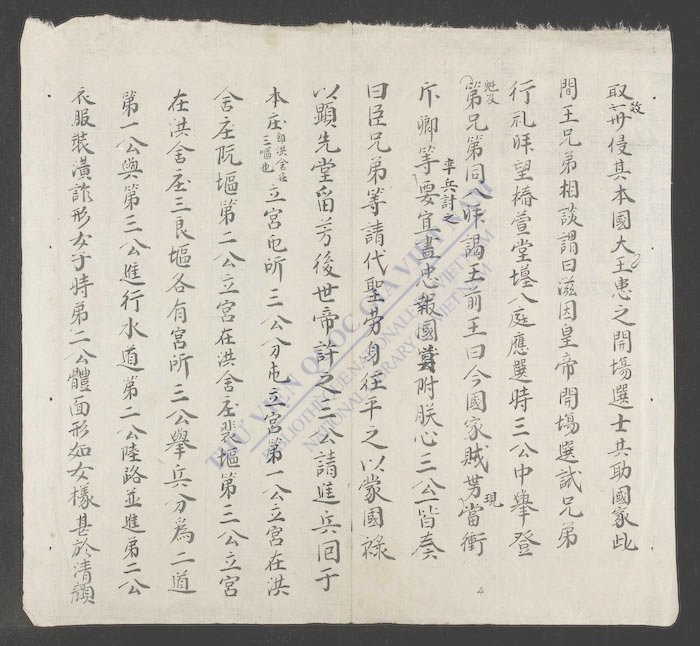 取舟侵其本國大王患之開場選士共助國家此
間王兄弟相談謂曰滋因皇帝開場選試兄弟
行礼拜望椿萱堂墀入庭應選時三公中舉登
魁家
第兄第同入拜謁王前王曰今國家賊男當衝
現
率兵討之
斥卿等要宜盡忠報國冀附朕心三公皆奏
曰臣兄弟等請代聖勞身往平之以蒙國祿
以顯先堂留芳後世帝許之三公請進兵回于
本庄即洪舍庄三嘔也立宮屯所三公分屯立宮第一公立宮在洪
舍庄阮堰第二公立宮在洪舍庄裴堰第三公立宮
在洪舍庄三良堰各有宮所三公舉兵分為二道
第一公與第三公進行水道第二公陸路並進第二公
衣服裝潢詐形女子時第二公體面形如女樣甚於清顏
4
THƯ VIỆN QUỐC GIA VIỆT NAM
BIBLIOTHÈQUE NATIONALE DU VIETNAM
NATIONAL LIBRARY OF VIETNAM